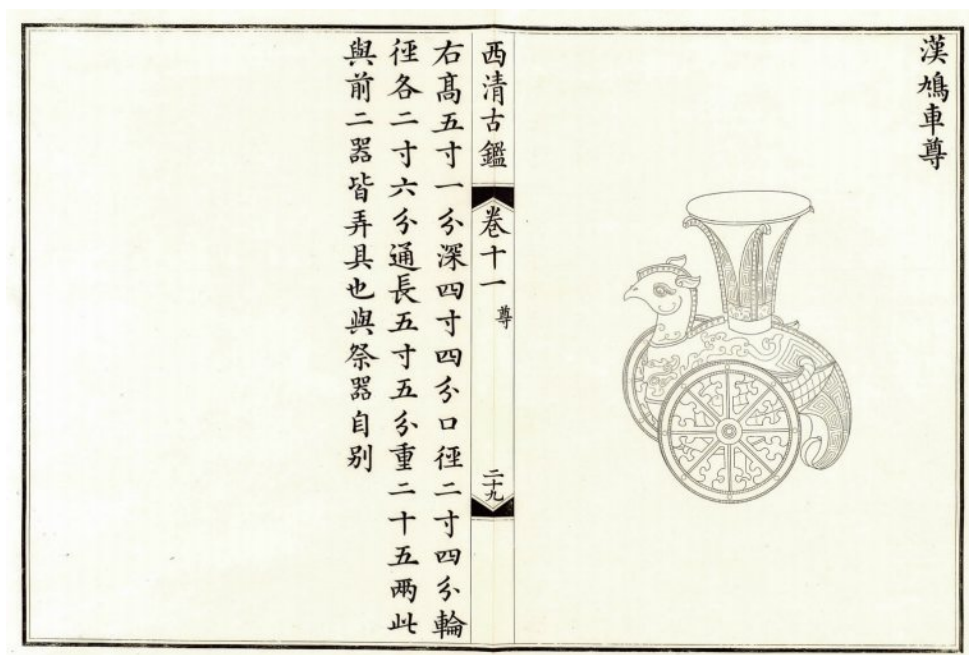 漢鳩車尊
西清古鑑
卷十一
尊
二十九
右髙五寸一分深四寸四分口徑二寸四分輪
徑各二寸六分通長五寸五分重二十五兩此
與前二器皆弄具也與祭器自别